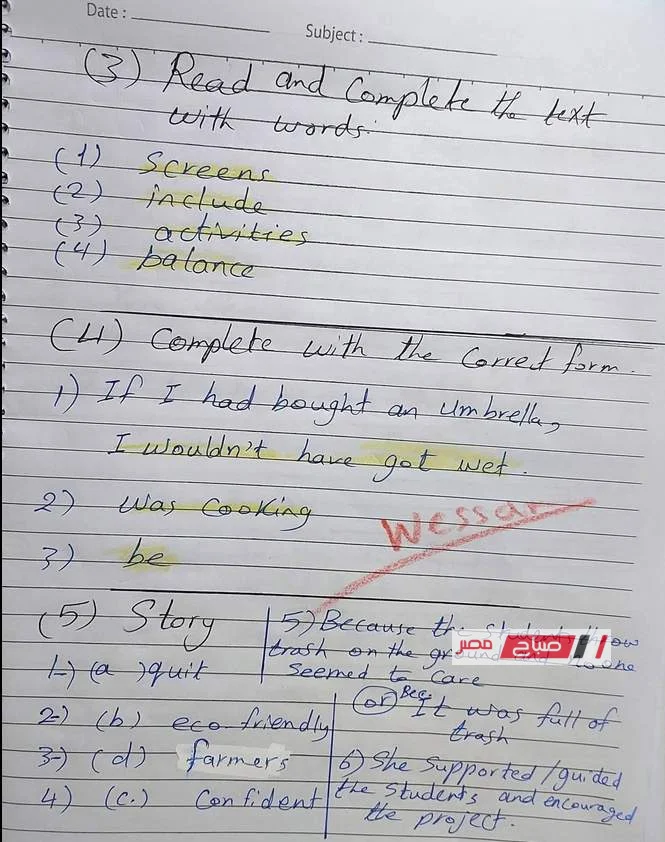 Date :
Subject :
(3) Read and Complete the text
with words:
(1) Screens
(2) include
(3) activities
(4) balance
(4) Complete with the Correct form.
1) If I had bought an umbrella,
I wouldn't have got wet.
2) was cooking
3) be
Wessam
(5) Story
1-) (a) quit
2-) (b) eco-friendly
3-) (d) farmers
4) (c.) Confident
5) Because the
trash on the one
seemed to care
صباح مصر
(or) Bec. It was full of
trash
6) She Supported/guided
the students and encouraged
the project.